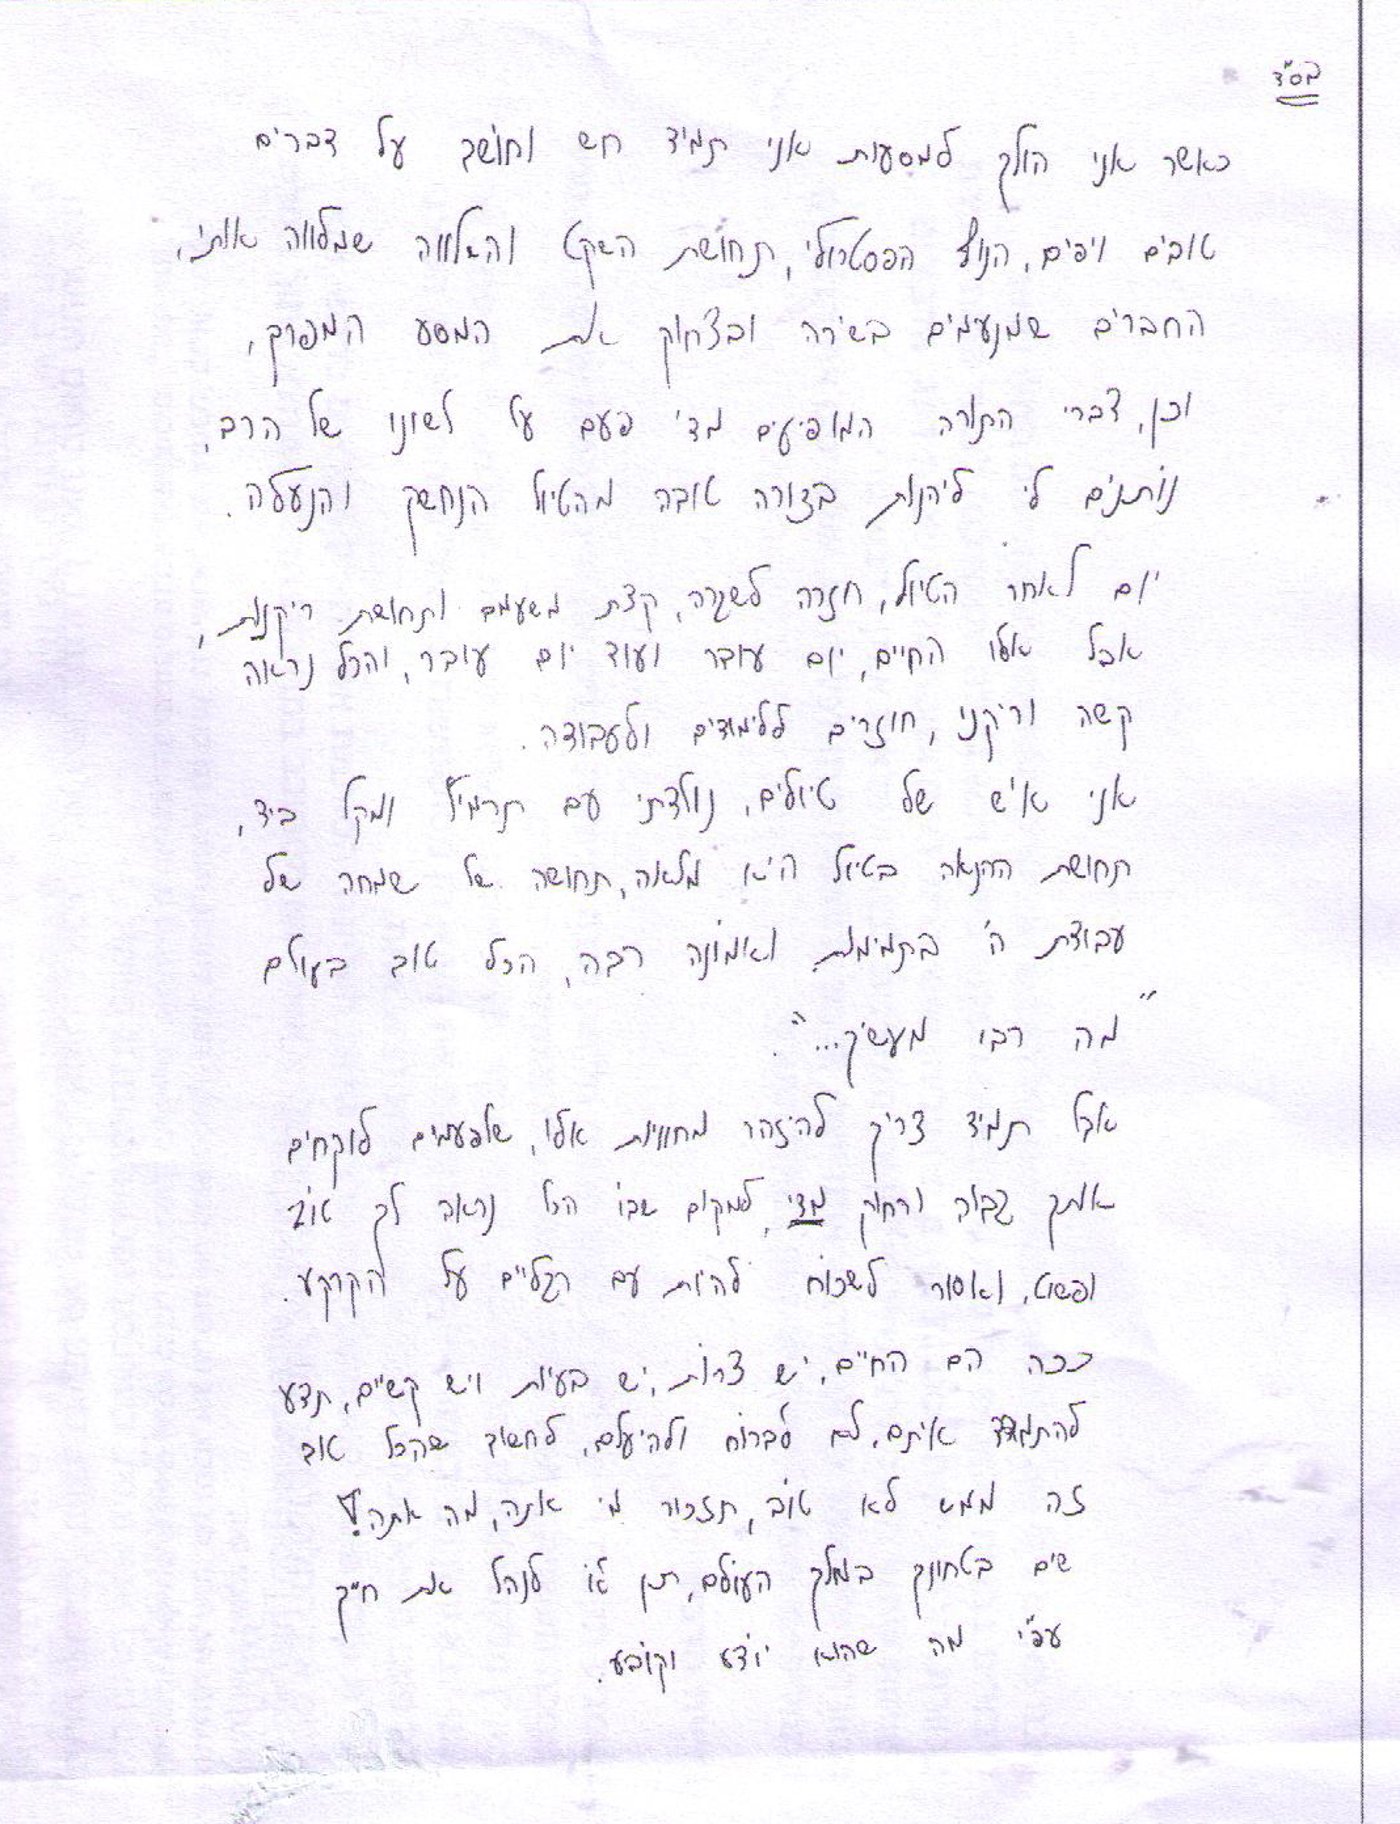 בס"ד
כאשר אני הולך למסעות אני תמיד חש וחושב על דברים
טובים ויפים, הנוף הפסטרולי, תחושת השקט והשלווה שמלווה אותי,
החברים שמנעימים בשירה ובצחוק את המסע המפרך,
וכן, דברי התורה המופיעים מדי פעם על לשונו של הרב,
נותנים לי ליהנות בצורה טובה מהטיול הנחשק והנעלה.
יום לאחר הטיול, חזרה לשגרה, קצת משעמם ותחושת ריקנות,
אבל אלו החיים, יום עובר ועוד יום עובר, והכל נראה
קשה וריקני, חוזרים ללימודים ולעבודה.
אני איש של טיולים, נולדתי עם תרמיל ומקל ביד,
תחושת ההנאה בטיול היא מלאה, תחושה של שמחה של
עבודת ה' בתמימות ואמונה רבה, הכל טוב בעולם
"מה רבו מעשיך...".
אבל תמיד צריך להיזהר מחוויות אלו, שלפעמים לוקחים
אותך גבוה ורחוק מדי, למקום שבו הכל נראה לך טוב
ופשוט, ואסור לשכוח להיות עם רגליים על הקרקע.
ככה הם החיים, יש צרות, יש בעיות ויש קשיים, תדע
להתמודד איתם, לא לברוח ולהיעלם, לחשוב שהכל טוב
זה ממש לא טוב, תזכור מי אתה, מה אתה!
שים בטחונך במלך העולם, תן לו לנהל את חייך
עפ"י מה שהוא יודע וקובע.